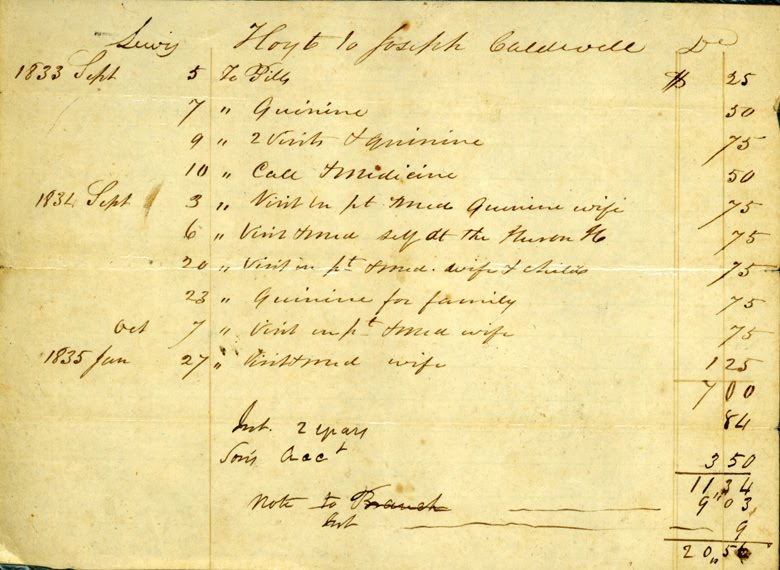 Lewis Hoyt to Joseph Caldwell Dr
1833 Sept 5 To Pills $ 25
7 " Quinine 50
9 " 2 visits & quinine 75
10 " Call & Medicine 50
1834 Sept 3 " Visit in pt & med Quinine wife 75
6 " Visit & med self at the Huron H 75
20 " Visit in pt & med. wife & childs 75
23 " Quinine for family 75
Oct 7 " Visit in pt & med wife 75
1835 Jan 27 " Visit & med wife 1 25
7 00
Int. 2 years 84
Son's acct 3 50
11 34
Note to Branch 9 " 03
Int 9
20 " 56